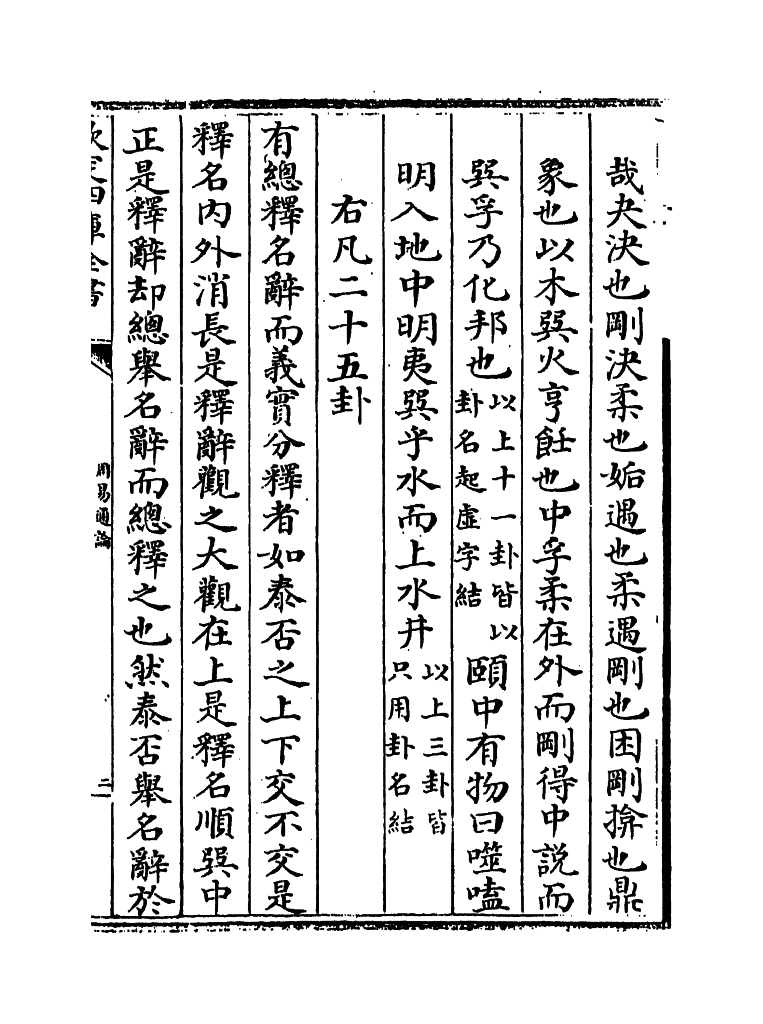 哉夬決也剛決柔也姤遇也柔遇剛也困剛揜也鼎
象也以木巽火亨飪也中孚柔在外而剛得中說而
巽孚乃化邦也以上十一卦皆以卦名起虛字結頤中有物曰噬嗑
明入地中明夷巽乎水而上水井以上三卦皆只用卦名結
右凡二十五卦
有總釋名辭而義實分釋者如泰否之上下交不交是
釋名內外消長是釋辭觀之大觀在上是釋名順巽中
正是釋辭却總舉名辭而總釋之也然泰否舉名辭於
欽定四庫全書
周易通論
二